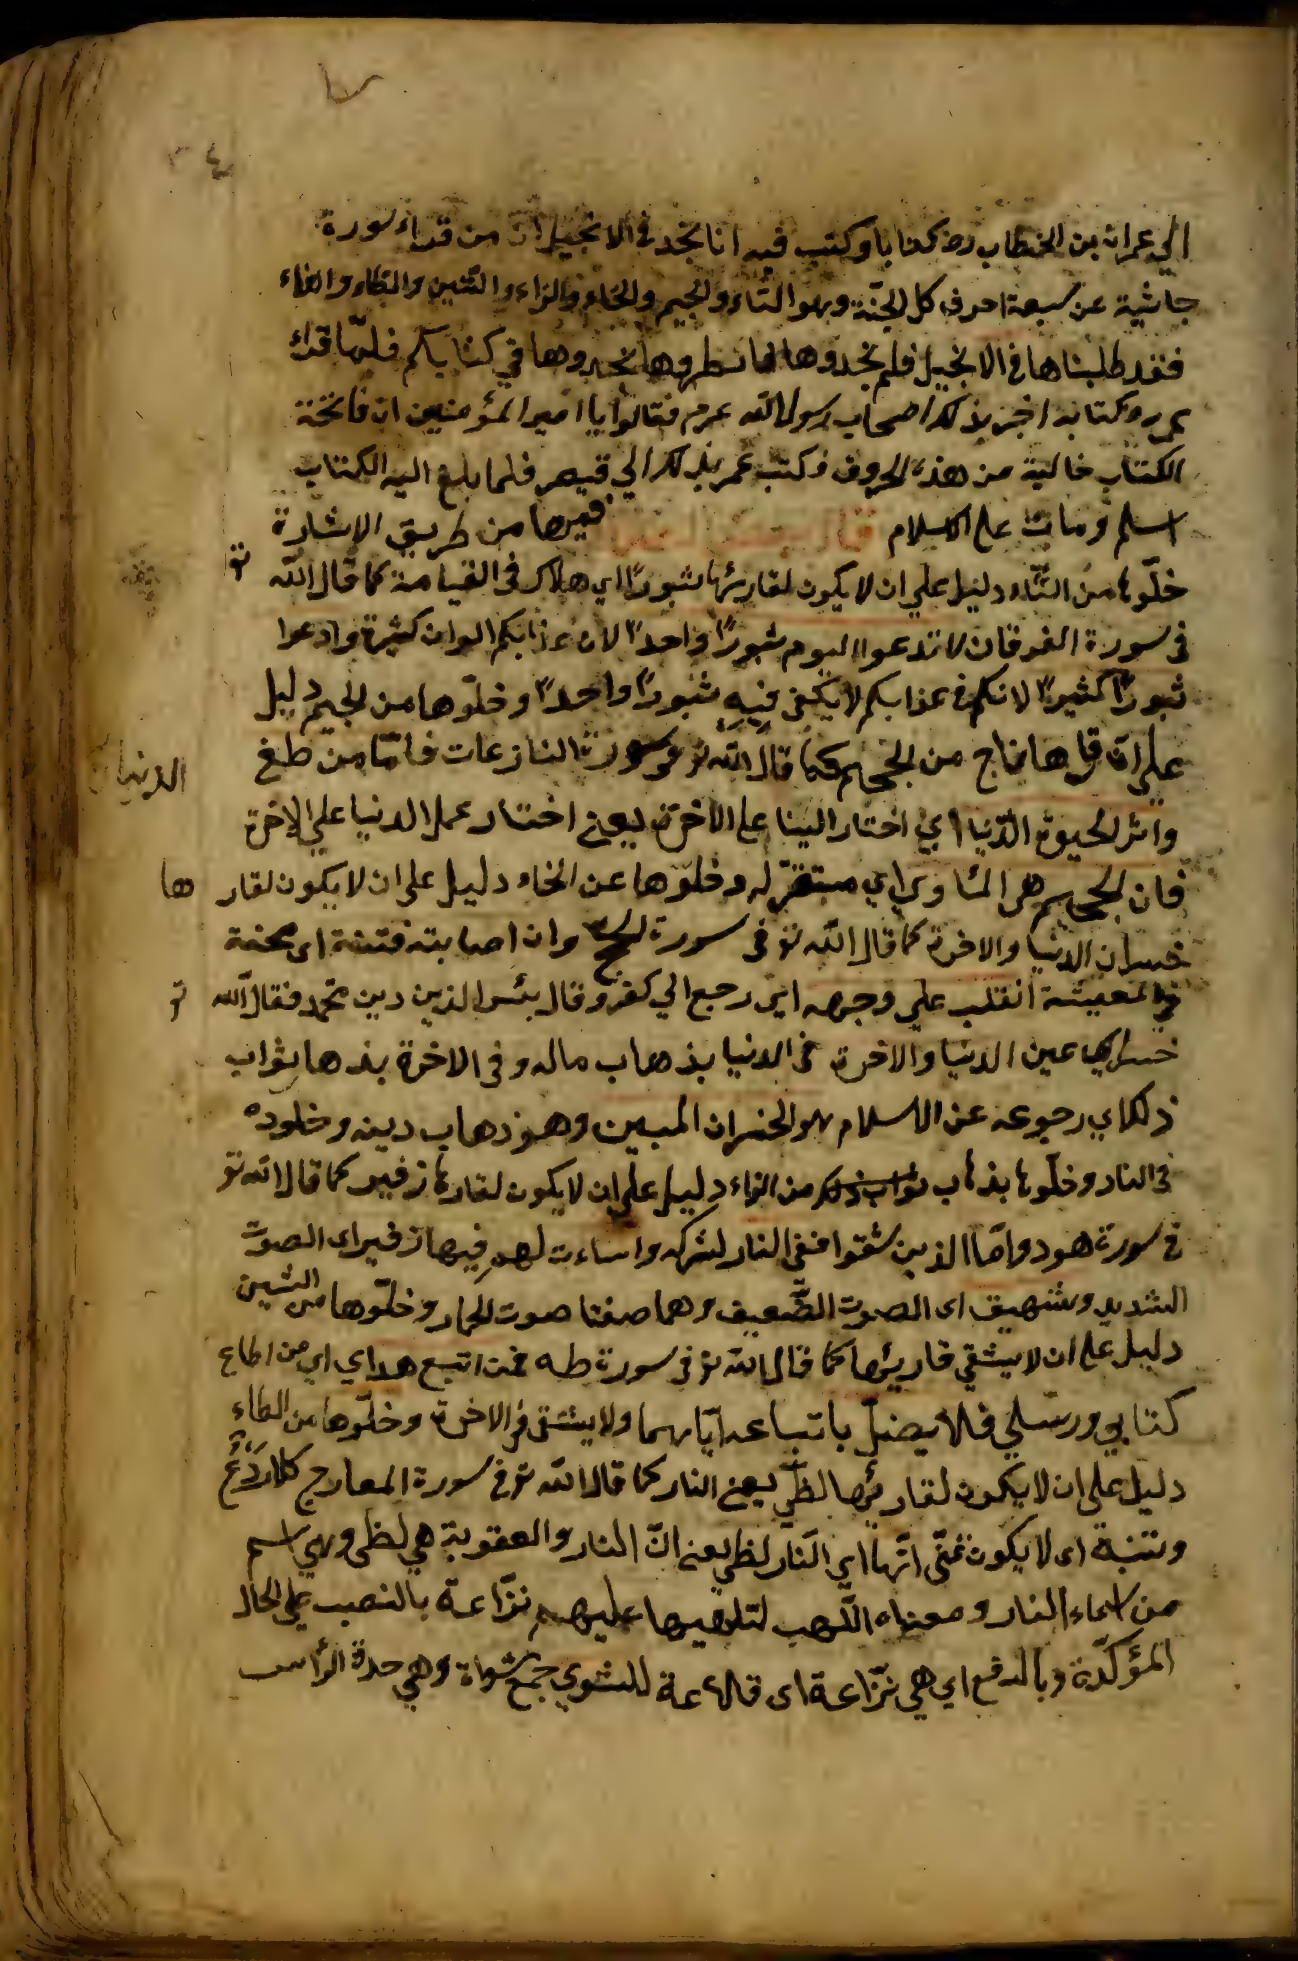 ٣٤
الي عمر ابن الخطاب رض كتابا وكتب فيه انا نجد في الانجيل ان من قراء سورة
خالية عن سبعة احرف كل الجنة وهو الثاء والجيم والخاء والزاء والشين والظاء والفاء
فقد طلبناها في الانجيل فلم نجدوها فانظروها تجدوها في كتابكم فلما قراء
عمر رض كتابه اخبر بذلك اصحاب رسول الله عم فقالوا يا امير المؤمنين ان فاتحة
الكتاب خالية من هذه الحروف فكتب عمر بذلك الي قيصر فلما بلغ اليه الكتاب
اسلم ومات علي الاسلام قال بعض من طريق الاشارة
خلوها من الثاء دليل علي ان لا يكون لقارئها ثبورًا اي هلاك في القيامة كما قال الله تو
في سورة الفرقان لا تدعوا اليوم ثبورًا واحدًا لان عذابكم الوان كثيرة وادعوا
ثبورًا كثيرًا لانكم في عذابكم لا يكفي فيه ثبورًا واحدًا وخلوها من الجيم دليل
علي ان قارها ناج من الجحيم كما قال الله تو في سورة النازعات فامّا من طغي
واثر الحيوة الدنيا اي اختار الدنيا علي الاخرة يعني اختار عمل الدنيا علي الاخرة
الدنيا
فان الجحيم هي المأوي اي مستقر له وخلوها عن الخاء دليل علي ان لا يكون لقارها
خسران الدنيا والاخرة كما قال الله تو في سورة الحج وان اصابته فتنة اي محنة
في المعيشة انقلب علي وجهه اي رجع الي كفر وقال بئس الدين دين محمد فقال الله تو
خسر اي عين الدنيا والاخرة في الدنيا بذهاب ماله وفي الاخرة بذهاب ثواب
ذلك اي رجوعه عن الاسلام هو الخسران المبين وهو ذهاب دينه وخلوده
في النار وخلوها بذهاب ثواب ذلك من الزاء دليل علي ان لا يكون لقارها زفير كما قال الله تو
في سورة هود وامّا الذين شقوا ففي النار لشركه واساءت لهم فيها زفير اي الصوت
الشديد وشهيق اي الصوت الضعيف وهما صفتا صوت الحمار وخلوها من الشين
دليل علي ان لا يشقي قاريها كما قال الله تو في سورة طه فمن اتبع هداي اي من اطاع
كتابي ورسلي فلا يضلّ باتباعه اياهما ولا يشقي في الاخرة وخلوها من الظاء
دليل علي ان لا يكون لقاريها لظي يعني النار كما قال الله تو في سورة المعارج كلا رَدْعٌ
وتنبه اي لا يكون تمنّي انها اي النار لظي يعني انّ النار والعقوبة هي لظي وهي اسم
من اسماء النار ومعناه اللّهب لتلهبها عليهم نزّاعة بالنصب علي الحال
المؤكدة وبالرفع اي هي نزّاعة اي قالعة للشوي جمع شواة وهي جلدة الرأس